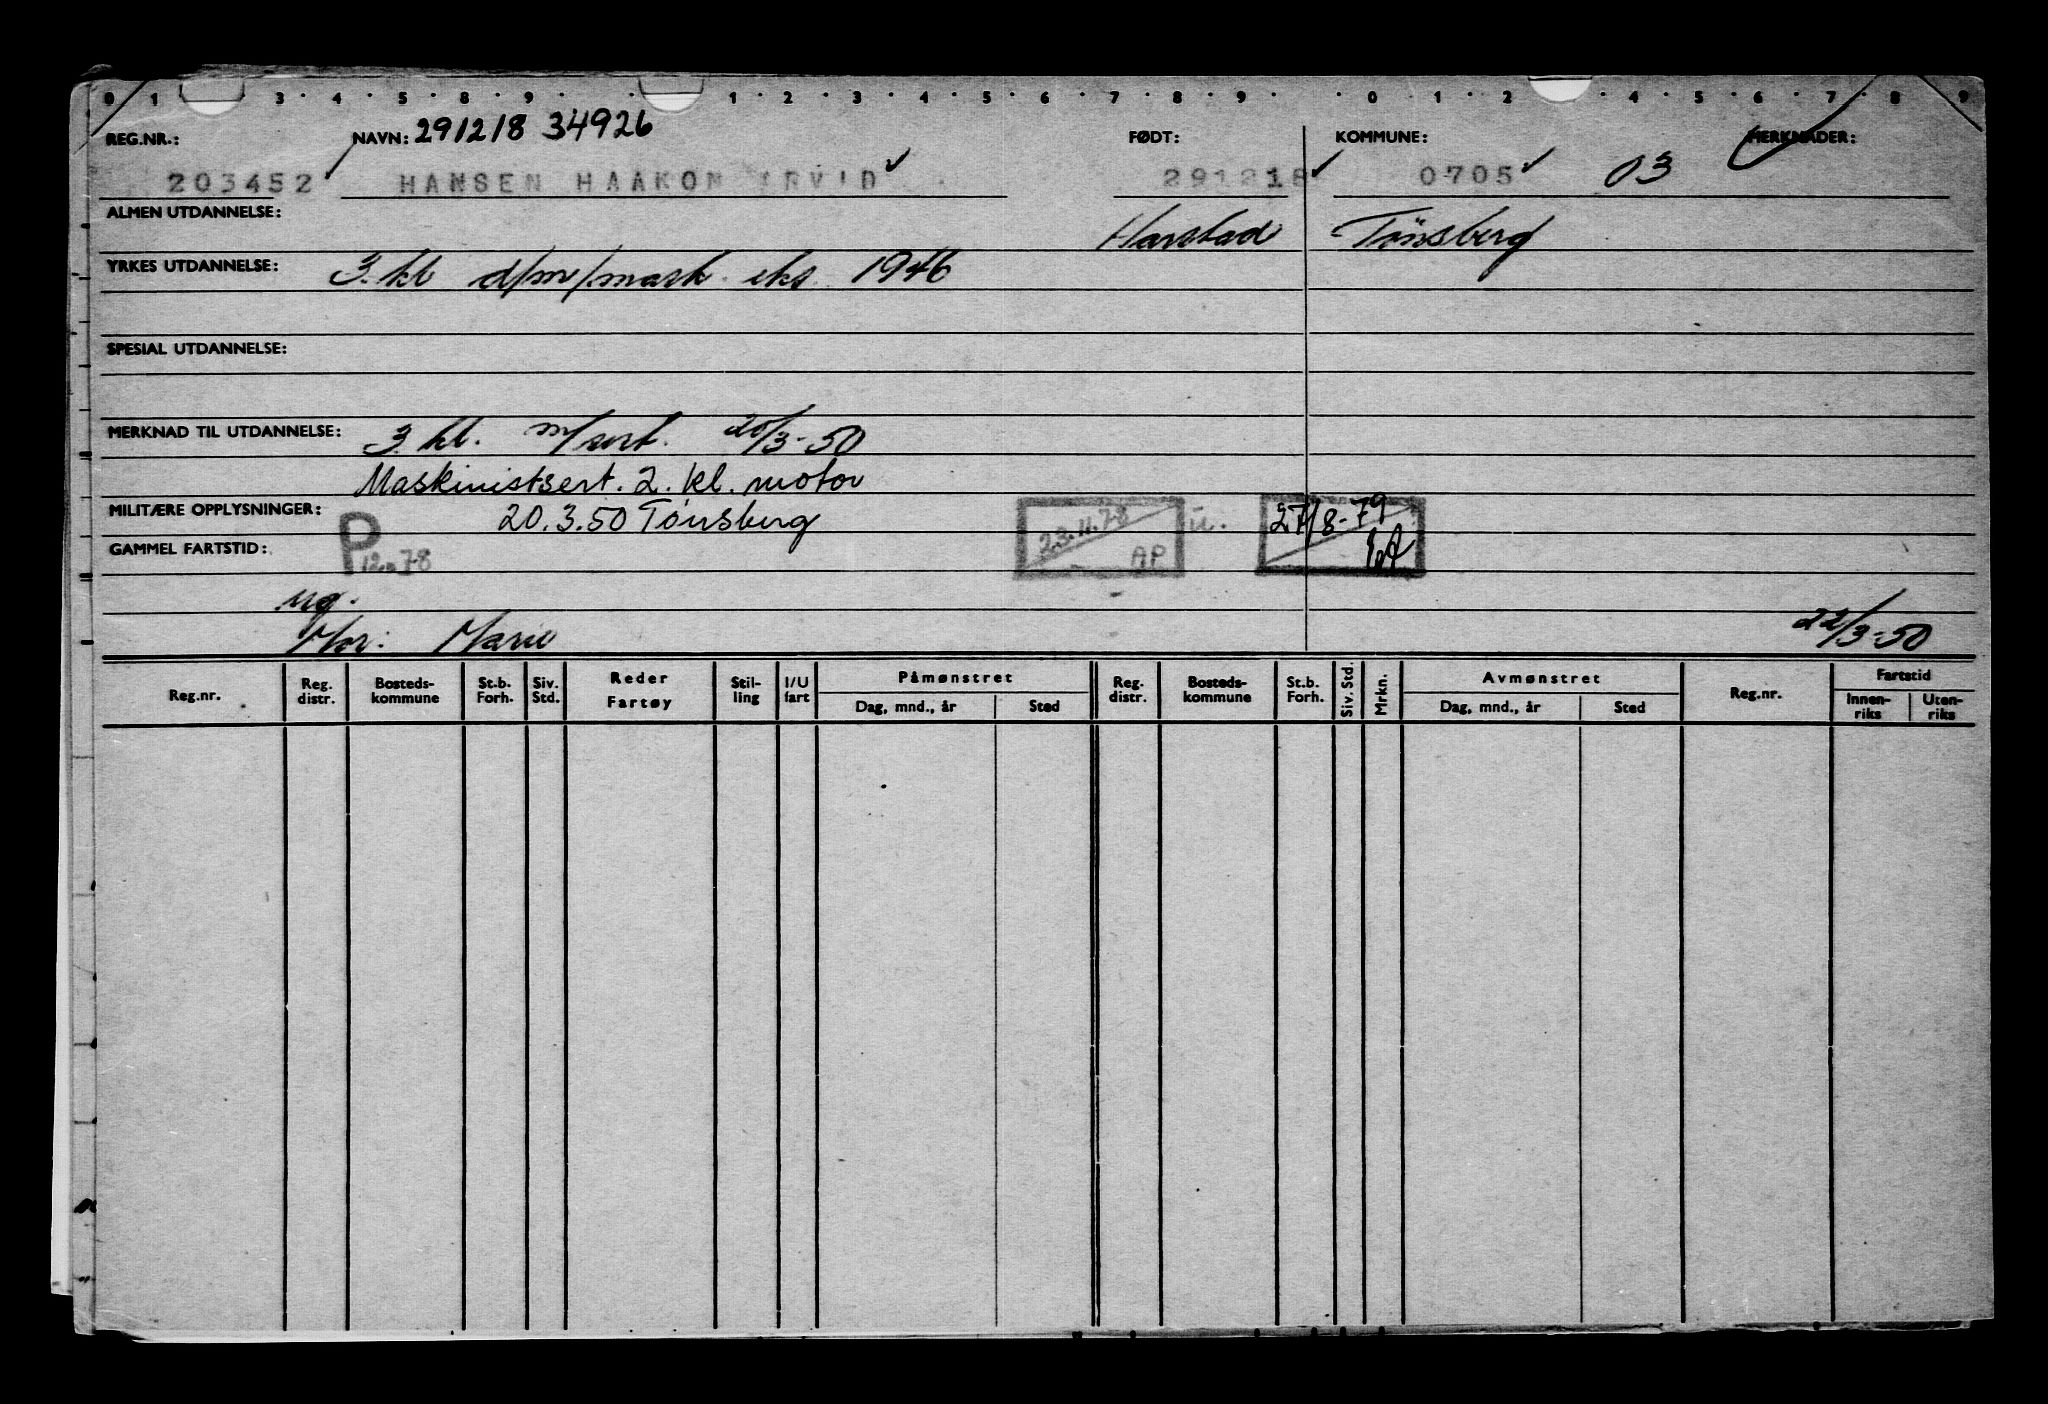 0 1 3 4 5 8 9 1 2 3 4 5 6 7 8 9 0 1 2 4 5 6 7 8 9
REG.NR.: NAVN: 291218 34926 FØDT: KOMMUNE: MERKNADER:
203452 HANSEN HAAKON ARVID 291218 0705 03
ALMEN UTDANNELSE: Harstad Tönsberg
YRKES UTDANNELSE: 3. kl d/m/mask. eks. 1946
SPESIAL UTDANNELSE:
MERKNAD TIL UTDANNELSE: 3 kl. m/sert. 20/3-50
Maskinistsert. 2. kl. motor
MILITÆRE OPPLYSNINGER: 20.3.50 Tönsberg 23.11.78 AP u. 27/8-79
GAMMEL FARTSTID: P 12.78
ug.
Mor: Marie 22/3-50
Reg.nr. Reg. distr. Bosteds-kommune St.b. Forh. Siv. Std. Reder Fartøy Stil-ling I/U fart Påmønstret Dag, mnd., år Sted Reg. distr. Bosteds-kommune St.b. Forh. Siv. Std. Mrkn. Avmønstret Dag, mnd., år Sted Reg.nr. Fartstid Innen-riks Uten-riks